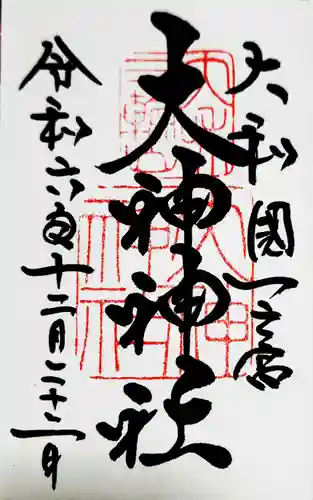 大和國一之宮
大神神社
令和六年十二月二十二日